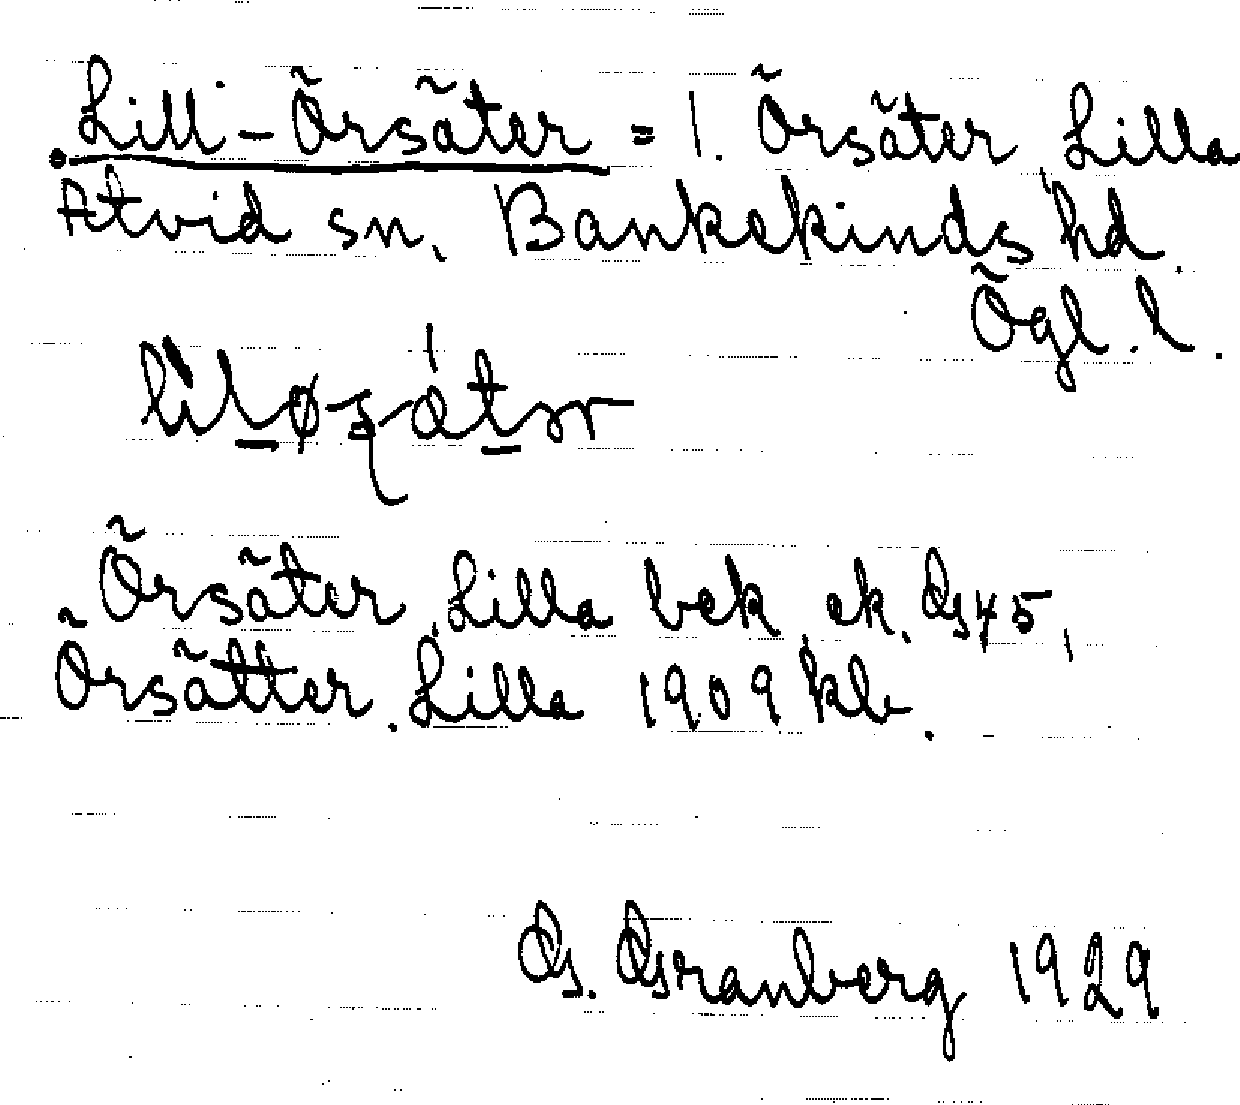 Lill-Örsäter = 1. Örsäter, Lilla
Åtvid sn, Bankekinds hd.
Ögl. l.
Örsäter, Lilla bek ek. G45,
Örsätter, Lilla 1909 kb.
G. Granberg 1929